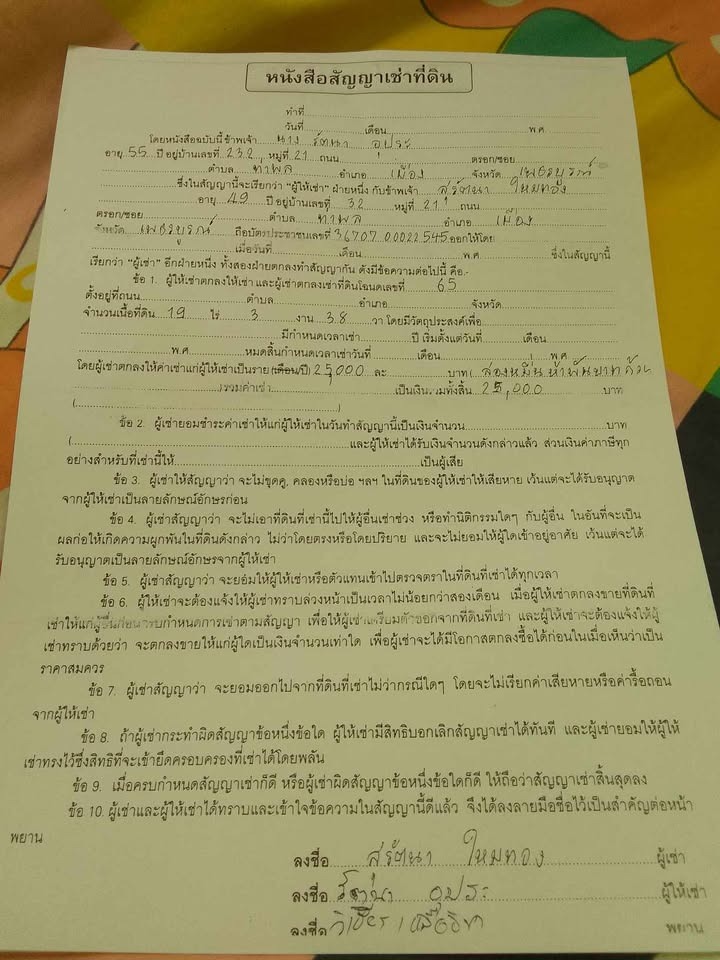 หนังสือสัญญาเช่าที่ดิน
ทำที่
วันที่ เดือน พ.ศ.
โดยหนังสือฉบับนี้ข้าพเจ้า นาง รัตนา อุประ
อายุ 55 ปี อยู่บ้านเลขที่ 232 หมู่ที่ 21 ถนน ตรอก/ซอย
ตำบล ท่าพล อำเภอ เมือง จังหวัด เพชรบูรณ์
ซึ่งในสัญญานี้จะเรียกว่า "ผู้ให้เช่า" ฝ่ายหนึ่ง กับข้าพเจ้า สุรัตนา ใหมทอง
อายุ 49 ปี อยู่บ้านเลขที่ 32 หมู่ที่ 21 ถนน
ตรอก/ซอย ตำบล ท่าพล อำเภอ เมือง
จังหวัด เพชรบูรณ์ ถือบัตรประชาชนเลขที่ 36707 00022545 ออกให้โดย
เมื่อวันที่ เดือน พ.ศ. ซึ่งในสัญญานี้
เรียกว่า "ผู้เช่า" อีกฝ่ายหนึ่ง ทั้งสองฝ่ายตกลงทำสัญญากัน ดังมีข้อความต่อไปนี้ คือ.-
ข้อ 1. ผู้ให้เช่าตกลงให้เช่า และผู้เช่าตกลงเช่าที่ดินโฉนดเลขที่ 65
ตั้งอยู่ที่ถนน ตำบล อำเภอ จังหวัด
จำนวนเนื้อที่ดิน 19 ไร่ 3 งาน 38 วา โดยมีวัตถุประสงค์เพื่อ
มีกำหนดเวลาเช่า ปี เริ่มตั้งแต่วันที่ เดือน
พ.ศ. หมดสิ้นกำหนดเวลาเช่าวันที่ เดือน พ.ศ.
โดยผู้เช่าตกลงให้ค่าเช่าแก่ผู้ให้เช่าเป็นราย(เดือน/ปี) 25,000 ละ บาท ( สองหมื่นห้าพันบาทถ้วน
)รวมค่าเช่า เป็นเงินรวมทั้งสิ้น 25,000 บาท
( )
ข้อ 2. ผู้เช่ายอมชำระค่าเช่าให้แก่ผู้ให้เช่าในวันทำสัญญานี้เป็นเงินจำนวน บาท
( และผู้ให้เช่าได้รับเงินจำนวนดังกล่าวแล้ว ส่วนเงินค่าภาษีทุก
อย่างสำหรับที่เช่านี้ให้ เป็นผู้เสีย
ข้อ 3. ผู้เช่าให้สัญญาว่า จะไม่ขุดคู, คลองหรือบ่อ ฯลฯ ในที่ดินของผู้ให้เช่าให้เสียหาย เว้นแต่จะได้รับอนุญาต
จากผู้ให้เช่าเป็นลายลักษณ์อักษรก่อน
ข้อ 4. ผู้เช่าสัญญาว่า จะไม่เอาที่ดินที่เช่านี้ไปให้ผู้อื่นเช่าช่วง หรือทำนิติกรรมใดๆ กับผู้อื่น ในอันที่จะเป็น
ผลก่อให้เกิดความผูกพันในที่ดินดังกล่าว ไม่ว่าโดยตรงหรือโดยปริยาย และจะไม่ยอมให้ผู้ใดเข้าอยู่อาศัย เว้นแต่จะได้
รับอนุญาตเป็นลายลักษณ์อักษรจากผู้ให้เช่า
ข้อ 5. ผู้เช่าสัญญาว่า จะยอมให้ผู้ให้เช่าหรือตัวแทนเข้าไปตรวจตราในที่ดินที่เช่าได้ทุกเวลา
ข้อ 6. ผู้ให้เช่าจะต้องแจ้งให้ผู้เช่าทราบล่วงหน้าเป็นเวลาไม่น้อยกว่าสองเดือน เมื่อผู้ให้เช่าตกลงขายที่ดินที่
เช่าให้แก่ผู้อื่นก่อนครบกำหนดการเช่าตามสัญญา เพื่อให้ผู้เช่าเตรียมตัวออกจากที่ดินที่เช่า และผู้ให้เช่าจะต้องแจ้งให้ผู้
เช่าทราบด้วยว่า จะตกลงขายให้แก่ผู้ใดเป็นเงินจำนวนเท่าใด เพื่อผู้เช่าจะได้มีโอกาสตกลงซื้อได้ก่อนในเมื่อเห็นว่าเป็น
ราคาสมควร
ข้อ 7. ผู้เช่าสัญญาว่า จะยอมออกไปจากที่ดินที่เช่าไม่ว่ากรณีใดๆ โดยจะไม่เรียกค่าเสียหายหรือค่ารื้อถอน
จากผู้ให้เช่า
ข้อ 8. ถ้าผู้เช่ากระทำผิดสัญญาข้อหนึ่งข้อใด ผู้ให้เช่ามีสิทธิบอกเลิกสัญญาเช่าได้ทันที และผู้เช่ายอมให้ผู้ให้
เช่าทรงไว้ซึ่งสิทธิที่จะเข้ายึดครอบครองที่เช่าได้โดยพลัน
ข้อ 9. เมื่อครบกำหนดสัญญาเช่าก็ดี หรือผู้เช่าผิดสัญญาข้อหนึ่งข้อใดก็ดี ให้ถือว่าสัญญาเช่าสิ้นสุดลง
ข้อ 10. ผู้เช่าและผู้ให้เช่าได้ทราบและเข้าใจข้อความในสัญญานี้ดีแล้ว จึงได้ลงลายมือชื่อไว้เป็นสำคัญต่อหน้า
พยาน
ลงชื่อ สุรัตนา ใหมทอง ผู้เช่า
ลงชื่อ รัตนา อุประ ผู้ให้เช่า
ลงชื่อ พยาน